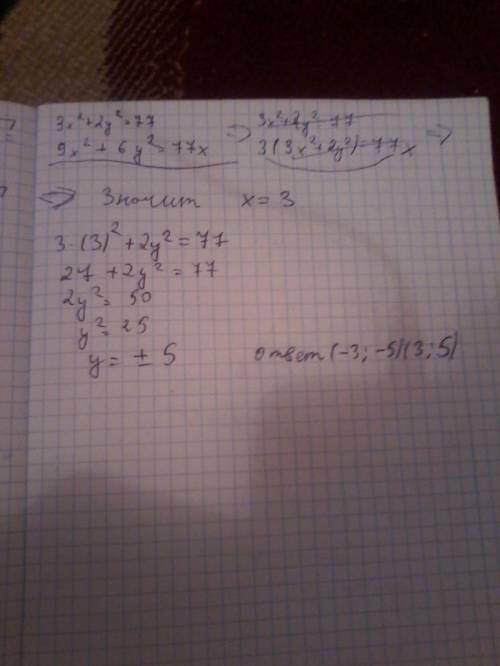 3x²+2y²=77 3x²+2y² 77
9x² + 6y²=77x ⇒ 3(3x²+2y²)=77x ⇒
⇒ Значит x=3
3·(3)²+2y²=77
27 +2y²=77
2y²= 50
y²=25
y= ± 5 ответ (-3; -5)(3; 5)